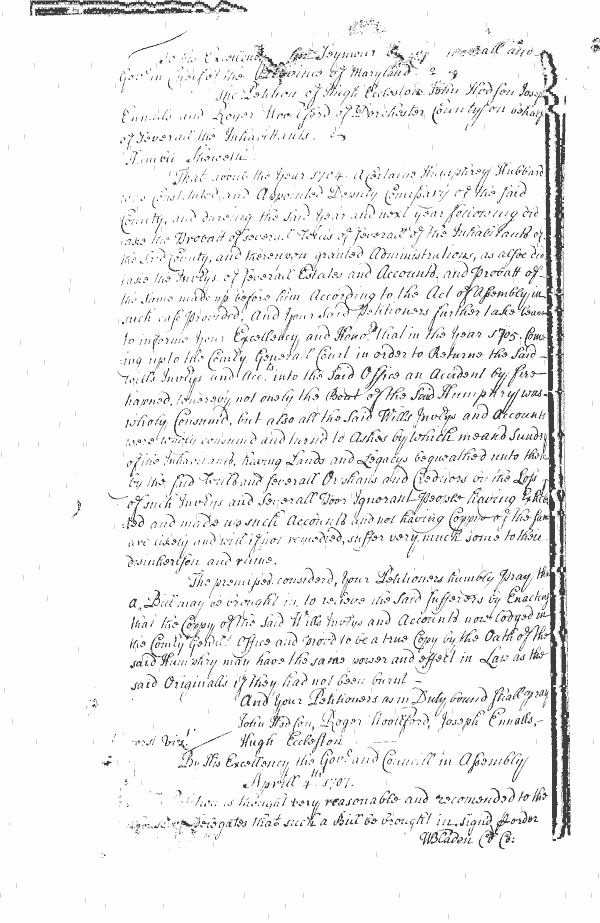 To his Excellency Seymour
Gov.r in Cheif of the Province of Maryland
The Petition of Hugh Eccleston John Hodson Joseph
Ennalls and Roger Woolford of Dorchester County on behalf
of severall the Inhabitants.
Humbly Sheweth
That about the Year 1704. A Certaine Humphrey Hubbard
was Constituted and Appointed Deputy Comissary of the said
County, and dureing the said Year and next year following did
take the Probatt of severall Wills of severall of the Inhabitants of
the said County, and thereupon granted Administrations, as alsoe did
take the Invtys. of severall Estates and Accounts, and Probatt of
the same made up before him According to the Act of Assembly in
such case provided, And Your Said Petitioners further take leave
to informe Your Excellency and Hono.rs that in the Year 1705. Com=
=ing up to the County Generall Court in order to Returne the Said
Wills Invtys and Acc.ts into the Said Office an Accident by fire
hapned, whereby not onely the Boat of the Said Humphry was
wholy Consumd, but also all the Said Wills Invtys and Accounts
were wholy consumd and turnd to Ashes by which means Sundry
of the Inhabitants, having Lands and Legacys bequeathed unto them
by the said Wills and severall Orphans and Creditors by the Loss
of such Invtys and severall Poor Ignorant People having
and made up such Accounts and not having Coppie of the same
are likely and will if not remedied, suffer very much some to their
disinherison and ruine.
The premises considerd, Your Petitioners humbly pray, that
a Bill may be brought in, to releive the said sufferers by Enacting
that the Coppy of the said Wills Invtys and Accounts now lodged in
the County Office and provd to be a true Copy by the Oath of the
said Humphry may have the same power and effect in Law as the
said Originalls if they had not been burnt
And Your Petitioners as in Duty bound shall pray
John Hodson, Roger Woolford, Joseph Ennalls,
Hugh Eccleston
By His Excellency the Gov.r and Councill in Assembly
Aprill 4th 1707.
Petition is thought very reasonable and recomended to the
house of Delegates that such a Bill be brought in. Signd p order
WBladen Cl Co: